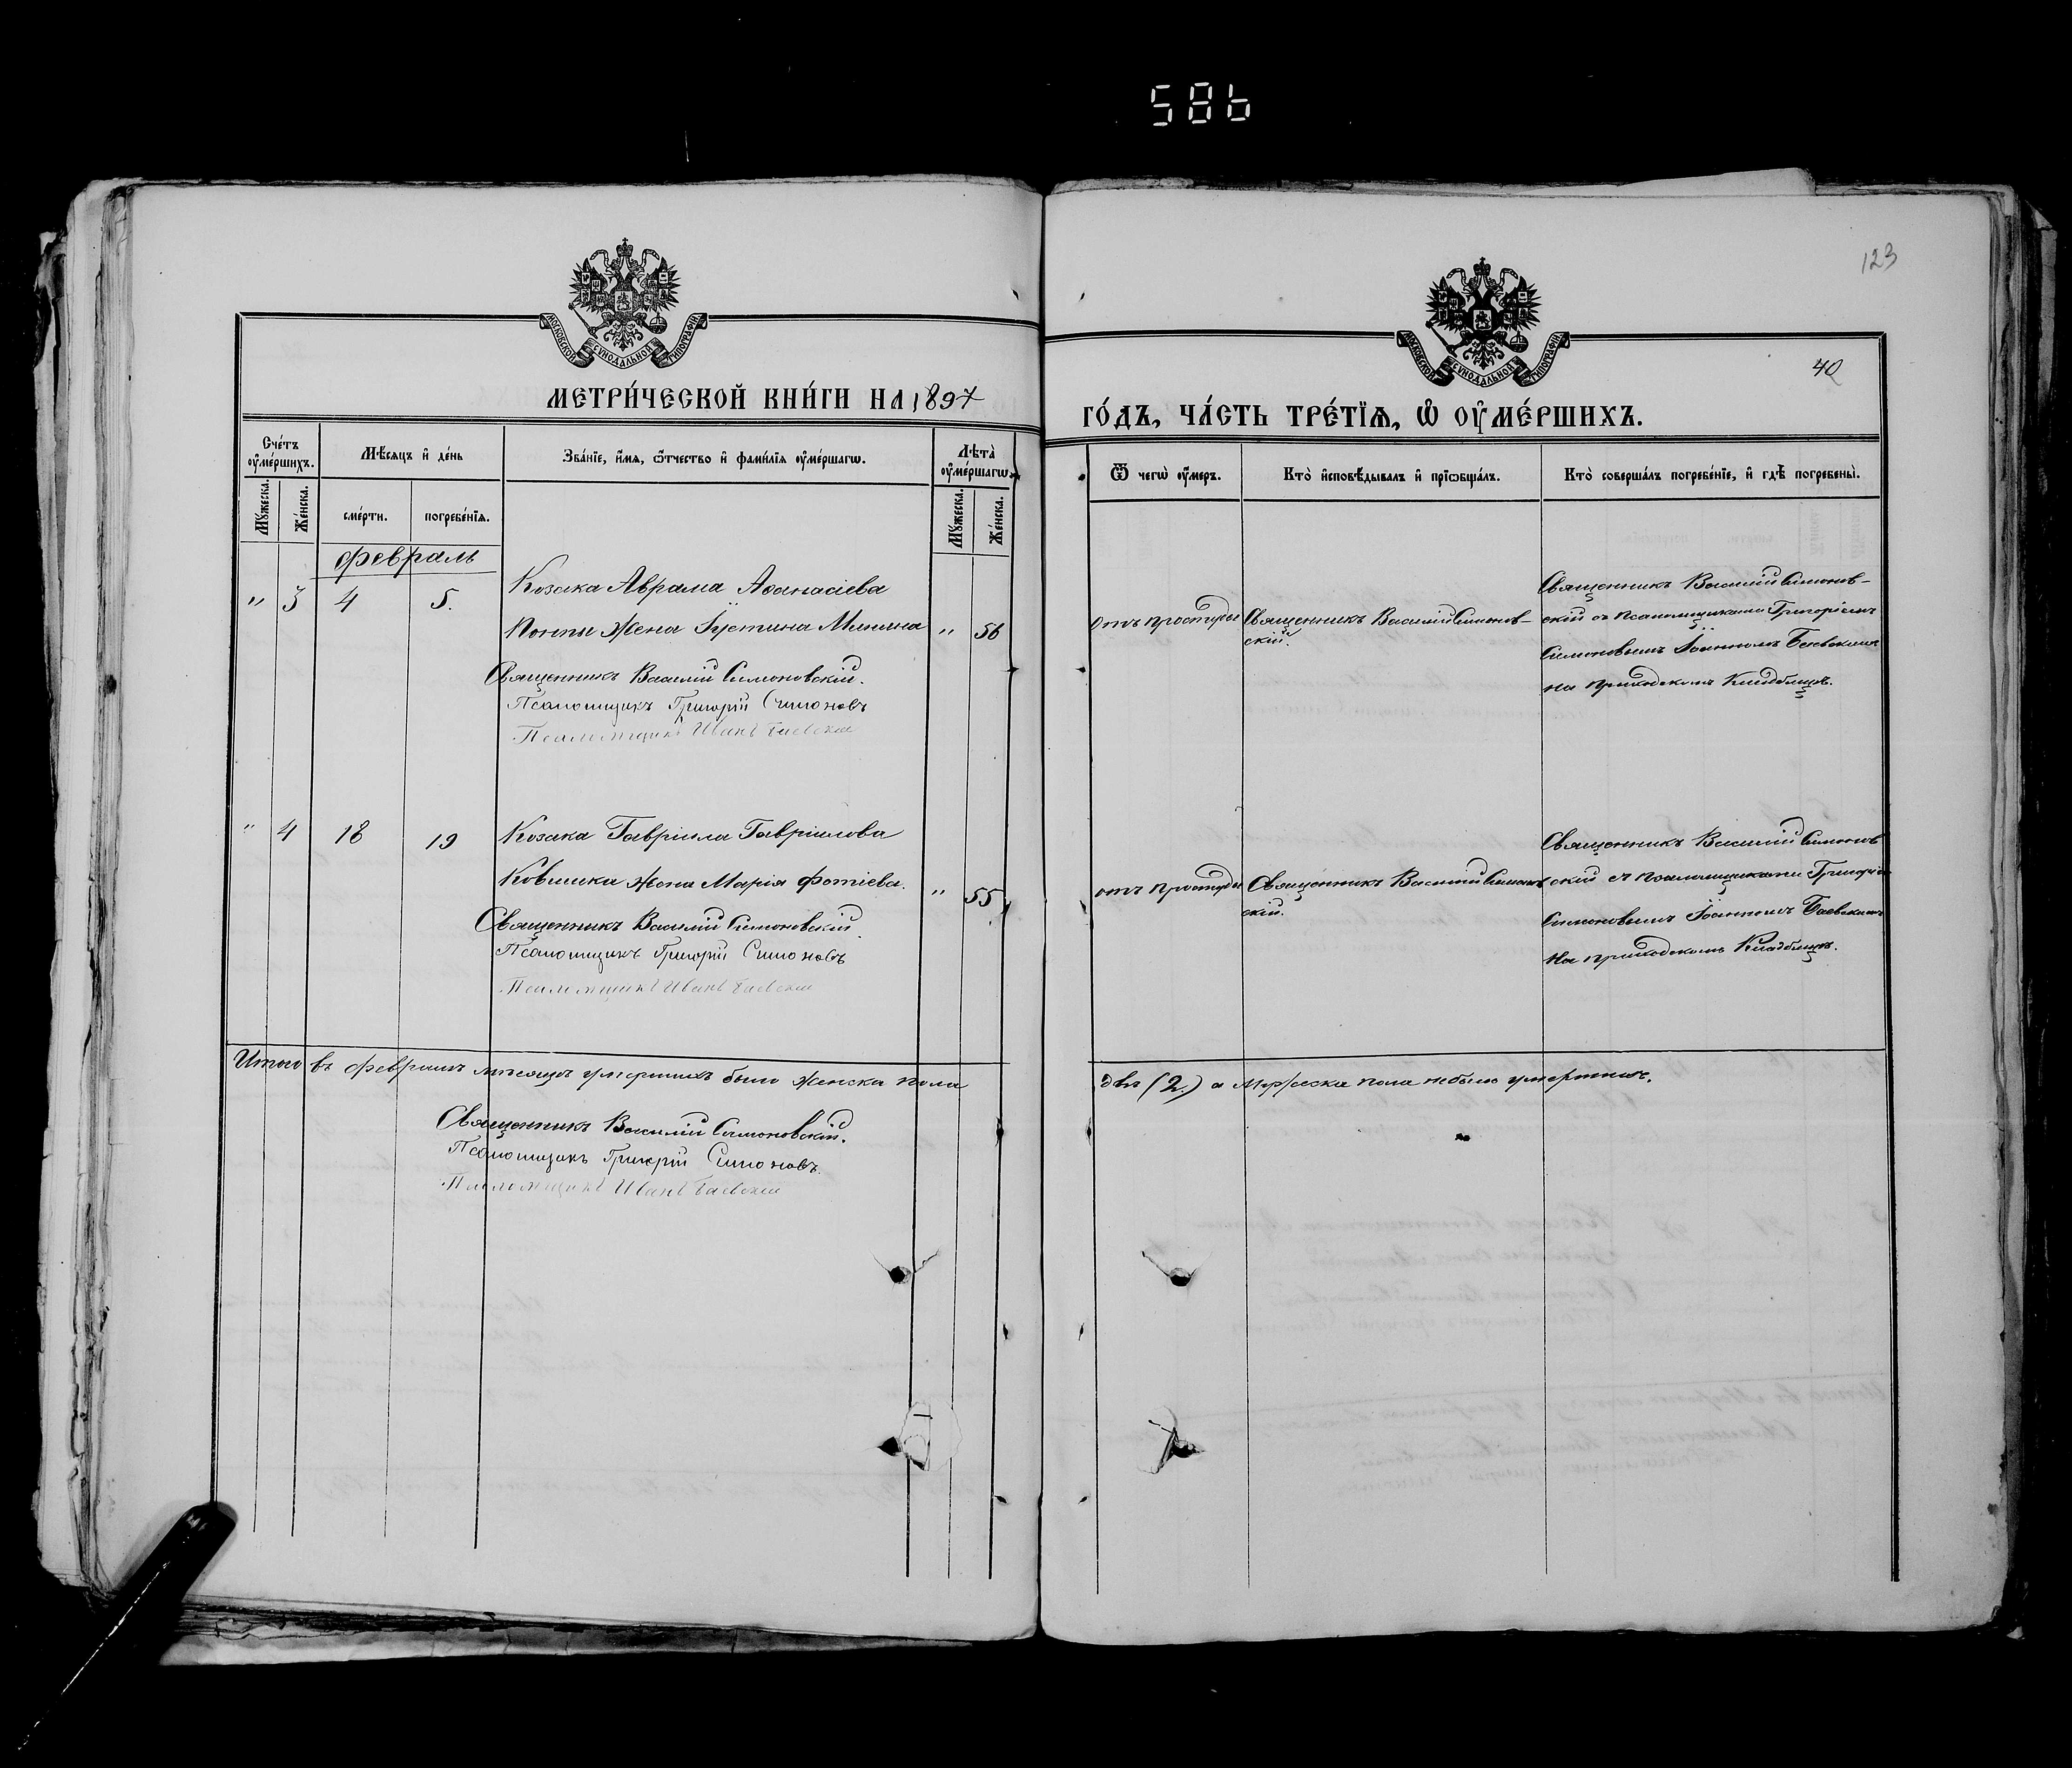 586
123
МОСКОВСКОЙ СѴНОДАЛЬНОЙ ТИПОГРАФІИ
МОСКОВСКОЙ СѴНОДАЛЬНОЙ ТИПОГРАФІИ
40
МЕТРИ́ЧЕСКОЙ КНИ́ГИ НА 1897
ГО́ДЪ, ЧА́СТЬ ТРЕ́ТЇѦ, Ѡ҆ ОУ҆МЕ́РШИХЪ.
Сче́тъ оу҆ме́ршихъ.
Мꙋ́жеска.
Же́нска.
Мѣ́сѧцъ и҆ де́нь
сме́рти.
погребе́нїѧ.
Зва́нїе, и҆́мѧ, ѻ҆́тчество и҆ фами́лїѧ оу҆ме́ршагѡ.
Лѣ́та̀ оу҆ме́ршагѡ.
Мꙋ́жеска.
Же́нска.
Ѿ чегѡ̀ оу҆́меръ.
Кто̀ и҆сповѣ́дывалъ и҆ прїѡбща́лъ.
Кто̀ соверша́лъ погребе́нїе, и҆ гдѣ̀ погребены̀.
Февраль
" 3 4 5.
Козака Аврама Аѳанасіева
жена Іустина " 56
Священникъ Василій Симоновскій.
Псаломщикъ Григорій Симоновъ
Псаломщикъ Иванъ Баевскій
Отъ простуды
Священникъ Василій Симонов-
скій.
Священникъ Василій Симонов-
скій съ псаломщиками Григоріемъ
Симоновымъ Іоанномъ Баевскимъ
на приходскомъ кладбищѣ.
" 4 18 19
Козака Гавріила Гавріилова
жена Марія Фотіева. " 55
Священникъ Василій Симоновскій.
Псаломщикъ Григорій Симоновъ
Псаломщикъ Иванъ Баевскій
отъ простуды
Священникъ Василій Симонов
скій.
Священникъ Василій Симонов
скій съ псаломщиками Григоріе
Симоновымъ Іоанномъ Баевскимъ
на приходскомъ кладбищѣ.
Итого въ февралѣ мѣсяцѣ умершихъ было женска пола
двѣ (2) а мужеска пола небыло умершихъ.
Священникъ Василій Симоновскій.
Псаломщикъ Григорій Симоновъ.
Псаломщикъ Иванъ Баевскій